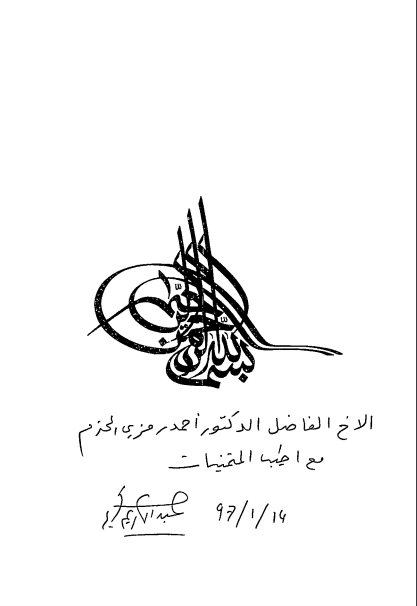 بسم الله الرحمن الرحيم
الاخ الفاضل الدكتور أحمد رمزي الحزم
مع اطيب التمنيات
97/1/14 عبد الكريم